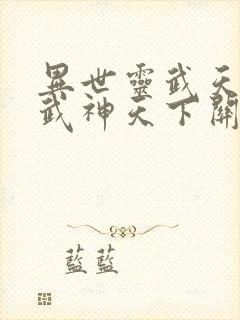 異世靈武天
武神天下關
藍藍